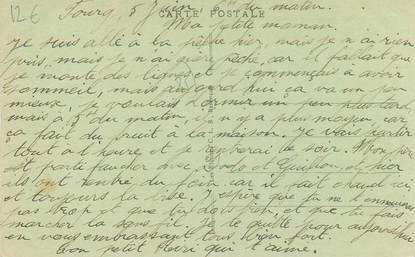 12€
5 Juin, 5h du matin.
CARTE POSTALE
Ma petite maman.
Je suis allé à la pêche hier, mais je n'ai rien
pris, mais je n'ai guère pêché, car il fallait que
je monte des lignes et je commençais à avoir
sommeil, mais aujourd'hui ça va un peu
mieux, je voulais dormir un peu plus tard,
mais à 5h du matin, il n'y a plus moyen, car
ça fait du bruit à la maison. Je vais partir
tout à l'heure et je rentrerai le soir. Mon père
est parti faucher avec et Guillon, et hier
ils ont rentré du foin, car il fait chaud ici
et toujours la bise. J'espère que tu ne t'ennuies
pas trop et que tu dors bien, et que tu fais
marcher la sans fil. Je te quitte pour aujourd'hui
en vous embrassant tous bien fort.
Ton petit Henri qui t'aime.